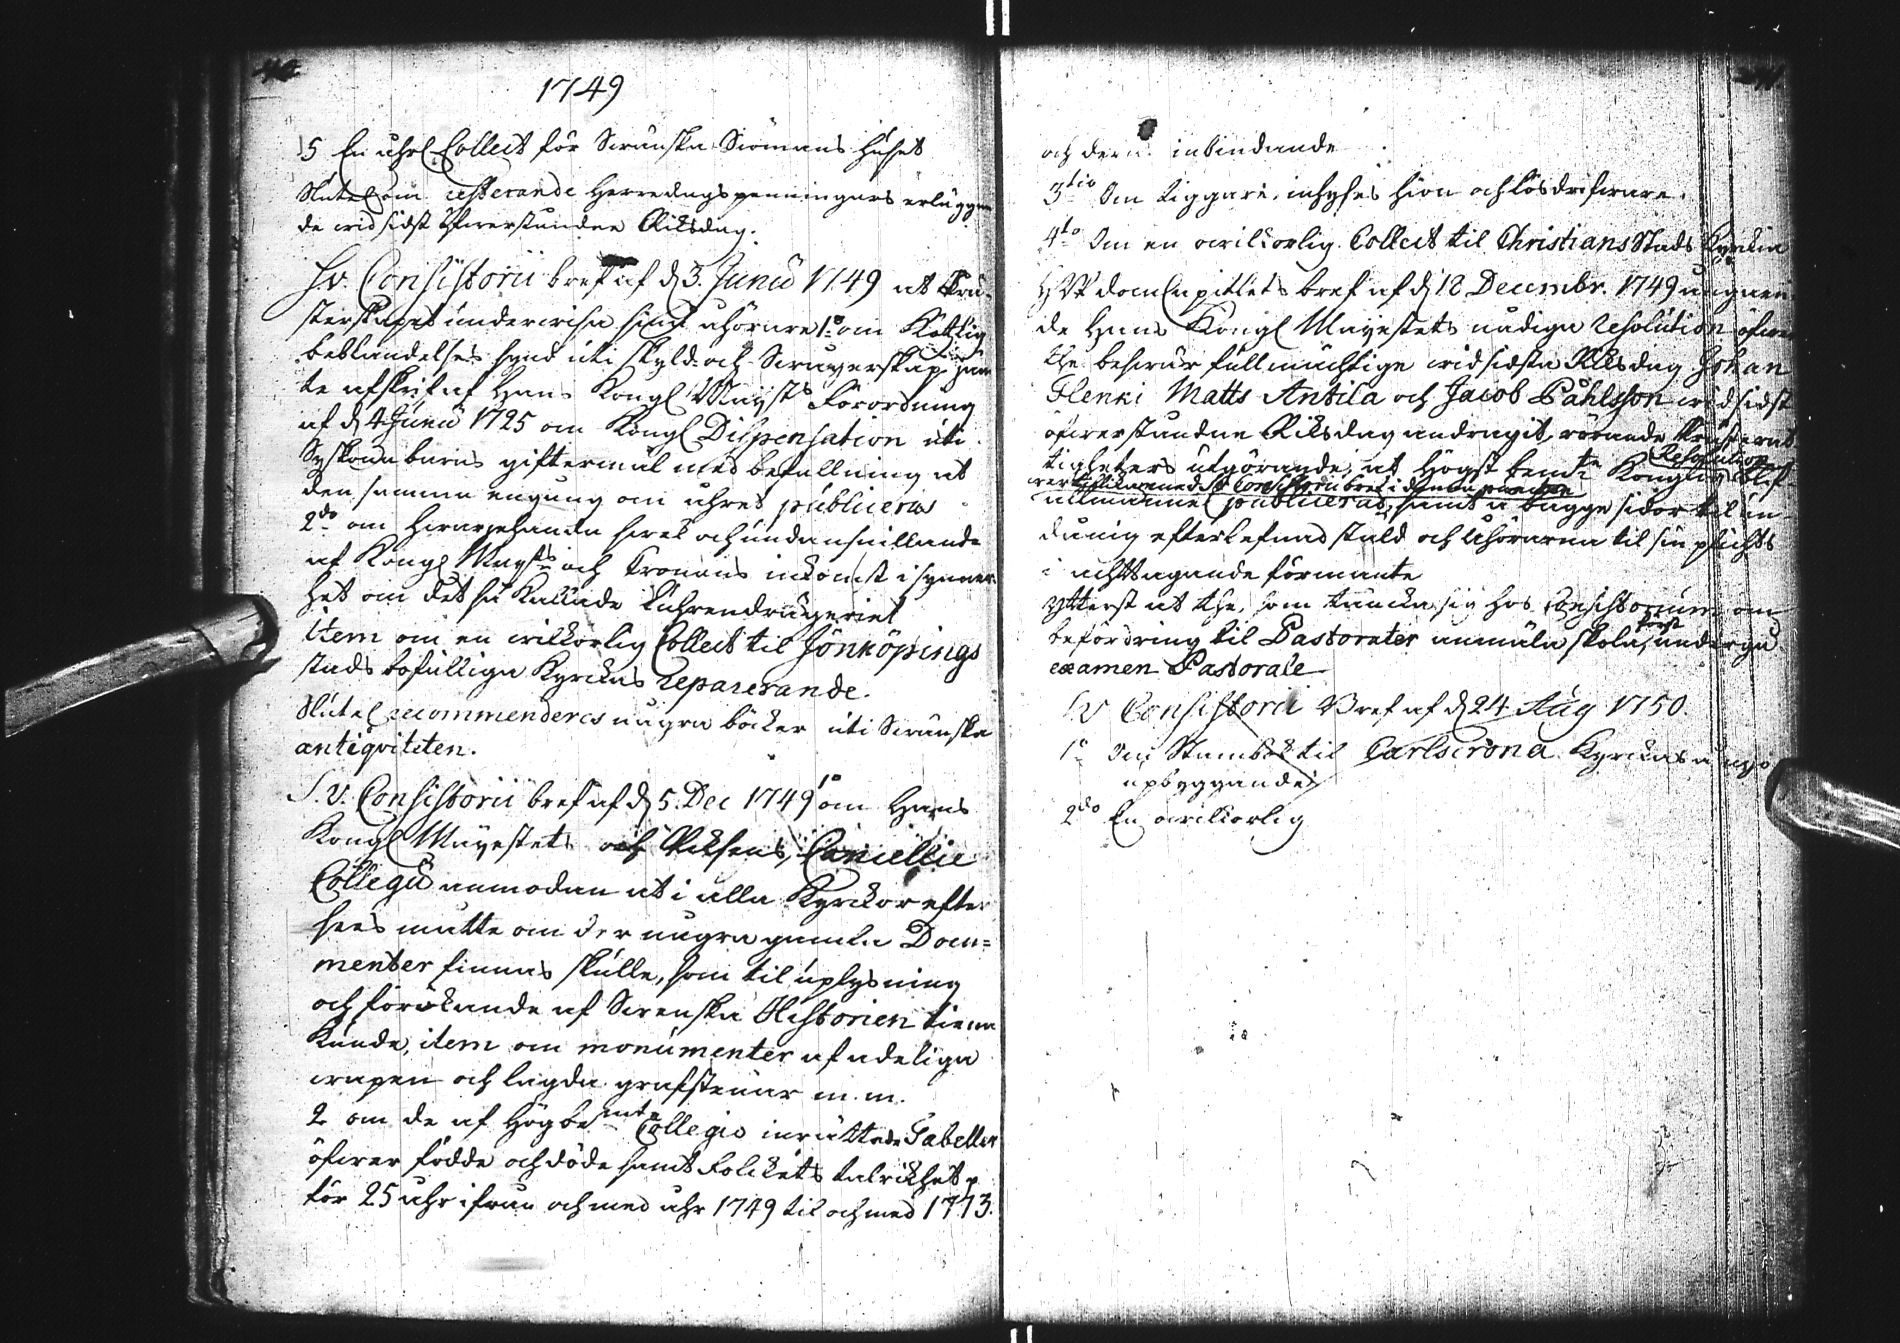 1749
5 En åhrl. Collect för Swänska Siömans huset
Slutel. om resterande Herredagspenningars erläggan
de wid sidst öfwerståndne Riksdag.
Sv. Consistorii bref af d. 3. Junii 1749 at Prä-
sterskapet underwisa sina åhörare 1:o om Kötzlig
beblandelses synd uti skyld- och Swågerskap jäm
te afskrift af Hans Kongl. Mayst:s Förordning
af d. 4 Junii 1725 om Kongl. Dispensation uti
Syskonabarns giftermål med befallning at
den samma engång om åhret publiceras
2:do om hwarjehanda swek och undansnillande
af Kongl. Mayst:s och Cronans inkomst i synner-
het om det så kallade Luhrendrägeriet
item om en wilkorlig Collect til Jönköpings
stads bofälliga Kyrckas reparerande.
Slutel. recommenderas några böcker uti Swänska
antiqviteten.
S.V. Consistorii bref af d. 5. Dec 1749 1:o om Hans
Kongl. Mayestets och Riksens, Cancellie
Collegii anmodan at i alla Kyrckor efter
sees måtte om der någre gamla Docu-
menter finnas skulle, som til uplysning
och förökande af Swenska Historien tiena
kunde, item om monumenter af adeliga
wapen och lagda grafstenar m.m.
2 om de af Högbemte Collegio inrättade Tabeller
öfwer födde och döde samt Folckets talrikhet p
för 25 åhr ifrån och med åhr 1749 til och med 1773.
och deras inbindande
3:tio Om tiggare, inhyses hion och lösdrifware.
4:to Om en wilkorlig Collect til Christians Stads Kyrcka
HW DomCapitlets bref af d. 18 Decembr. 1749 angåen-
de Hans Kongl. Mayestets nådiga resolution öfwer
the beswär fullmächtige wid sidsta Riksdag Johan
Flenki Matts Antila och Jacob Påhlsson wid sidst
öfwerståndne Riksdag andragit, rörande Prästerät-
tigheters utgörande, at Högst bem:te Konglig Resolution blef
Consistorii bref i denna
allmänne publiceras, samt å bägge sidor til än-
dånig efterlefnad stäld och Åhörarna til sin plichts
i achttagande förmante
ytterst at the, som täncka sig hos Consistorium om
befordring til Pastorater anmäla skola först undergå
examen Pastorale
S.V Consistorii Bref af d. 24 Aug 1750.
1:o Om Stambok til Carlscrona Kyrckas å nyo
upbyggande
2:do En wilkorlig